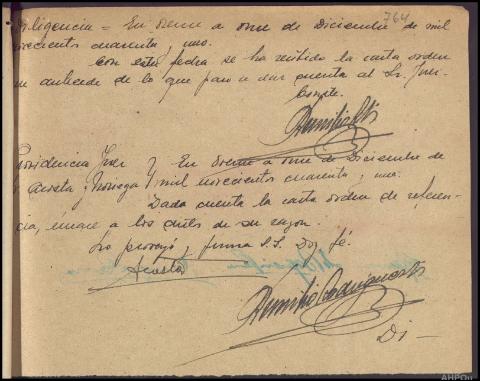 764
Diligencia = En Orense a once de Diciembre de mil
novecientos cuarenta y uno.
Con esta fecha se ha recibido la carta orden
que antecede de lo que paso a dar cuenta al Sr. Juez.
Conste.
Providencia Juez } En Orense a once de Diciembre de
Sr Acosta y Noriega } mil novecientos cuarenta y uno.
Dada cuenta la carta orden de referen-
cia, únase a los autos de su razon.
Lo proveyó y firma S.S. Doy fé.
Acosta
Di-
AHPOu